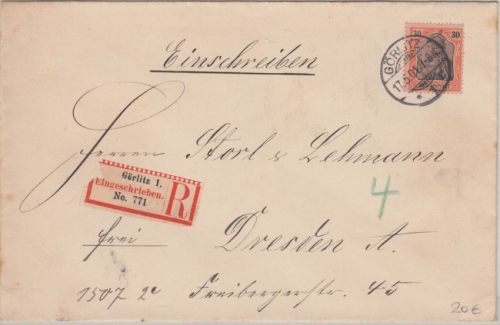 Einschreiben
30 30
GÖRLITZ
17.5.01
Herren Storl & Lehmann
Görlitz 1.
Eingeschrieben.
No. 771
R
4
frei
Dresden A.
1507 2e
Freibergerstr. 45
20€